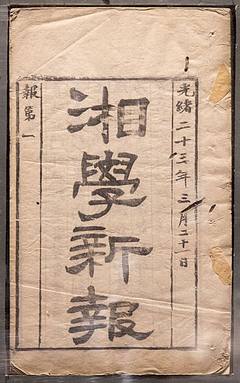 光緒二十三年三月二十一日
湘學新報
報第一